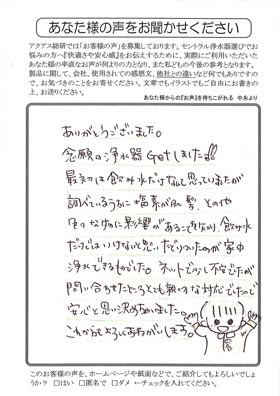 あなた様の声をお聞かせください
アクアス総研では「お客様の声」を募集しております。セントラル浄水器選びで
お悩みの方へ『快適さや安心感』をお伝えするために、実際にご利用いただいた
あなた様の率直なお声が何よりの力となり、また私どもの今後の参考となります。
製品に関して、会社、使用されての感想文、他社との違いなど何でもありますので
で、お気づきのことをお寄せください。文章でもイラストでもご自由にお書きの
上、お送りください。
あなた様からの『お声』を待ちこがれる 中永より
ありがとうございました。
念願の浄水器Getしました!!
最初は飲み水だけなんて思っていましたが
調べているうちに塩素が肌、髪、その他
身体に影響があることを知り、飲み水
だけではいけないと思いたどりついたのが家中
浄水できるものでした。ネットで少し不安でしたが
問い合わせたところとても親切な対応でしたので
安心と思い決めました。
これからもよろしくおねがいします。
このお客様の声を、ホームページや紙面などで、ご紹介してもよろしいでしょ
うか? □はい □匿名で □ダメ ←チェックを入れてください。